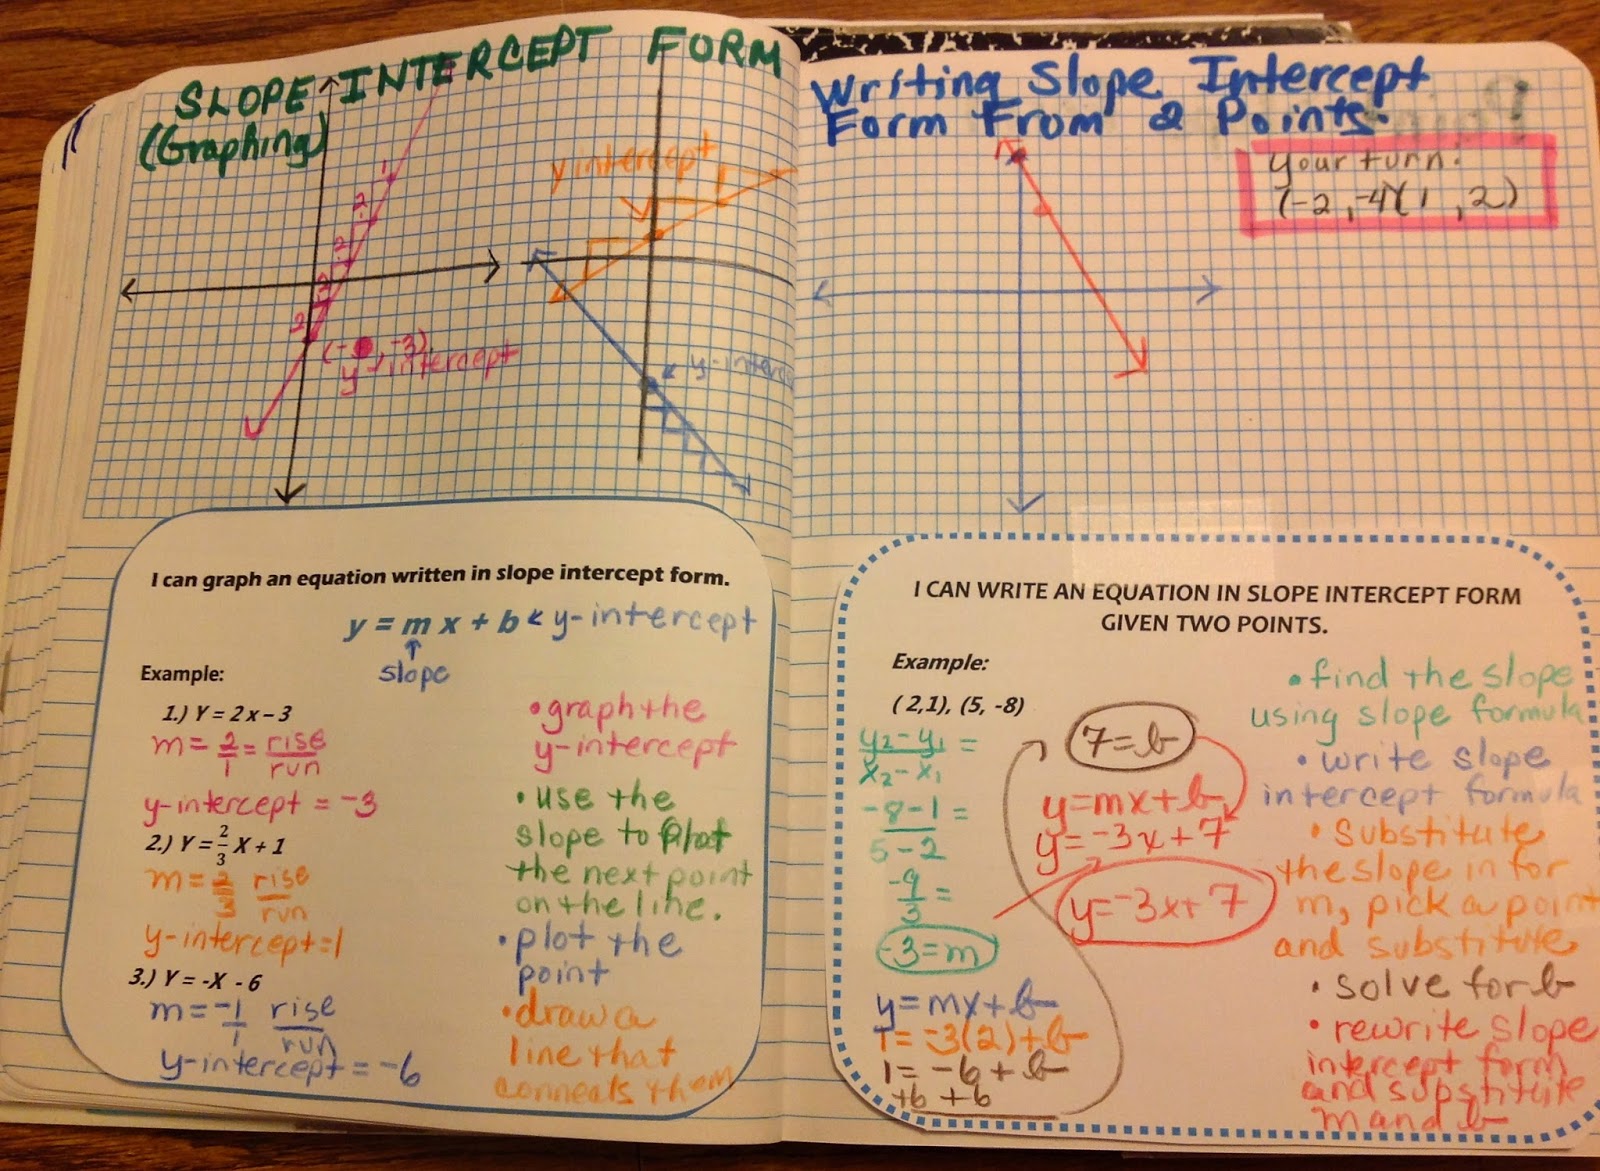 SLOPE INTERCEPT FORM
(Graphing)
y intercept
1
2
2
2
2
2
(- , -3)
y-intercept
y-interc
I can graph an equation written in slope intercept form.
y = m x + b ← y-intercept
slope
Example:
1.) Y = 2x – 3
m = 2/1 = rise/run
y-intercept = -3
2.) Y = 2/3 X + 1
m = 2/3 rise/run
y-intercept = 1
3.) Y = -X - 6
m = -1/1 rise/run
y-intercept = -6
• graph the
y-intercept
• use the
slope to plot
the next point
on the line.
• plot the
point
• draw a
line that
connects them
Writing Slope Intercept
Form From 2 Points.
your turn:
(-2, -4)(1, 2)
I CAN WRITE AN EQUATION IN SLOPE INTERCEPT FORM
GIVEN TWO POINTS.
Example:
( 2,1), (5, -8)
y2 - y1 =
x2 - x1
-8 - 1 =
5 - 2
-9 =
3
-3 = m
y = mx + b
1 = -3(2) + b
1 = -6 + b
+6 +6
7 = b
y = mx + b
y = -3x + 7
y = -3x + 7
• find the slope
using slope formula
• write slope
intercept formula
• substitute
the slope in for
m, pick a point
and substitute
• solve for b
• rewrite slope
intercept form
and substitute
m and b